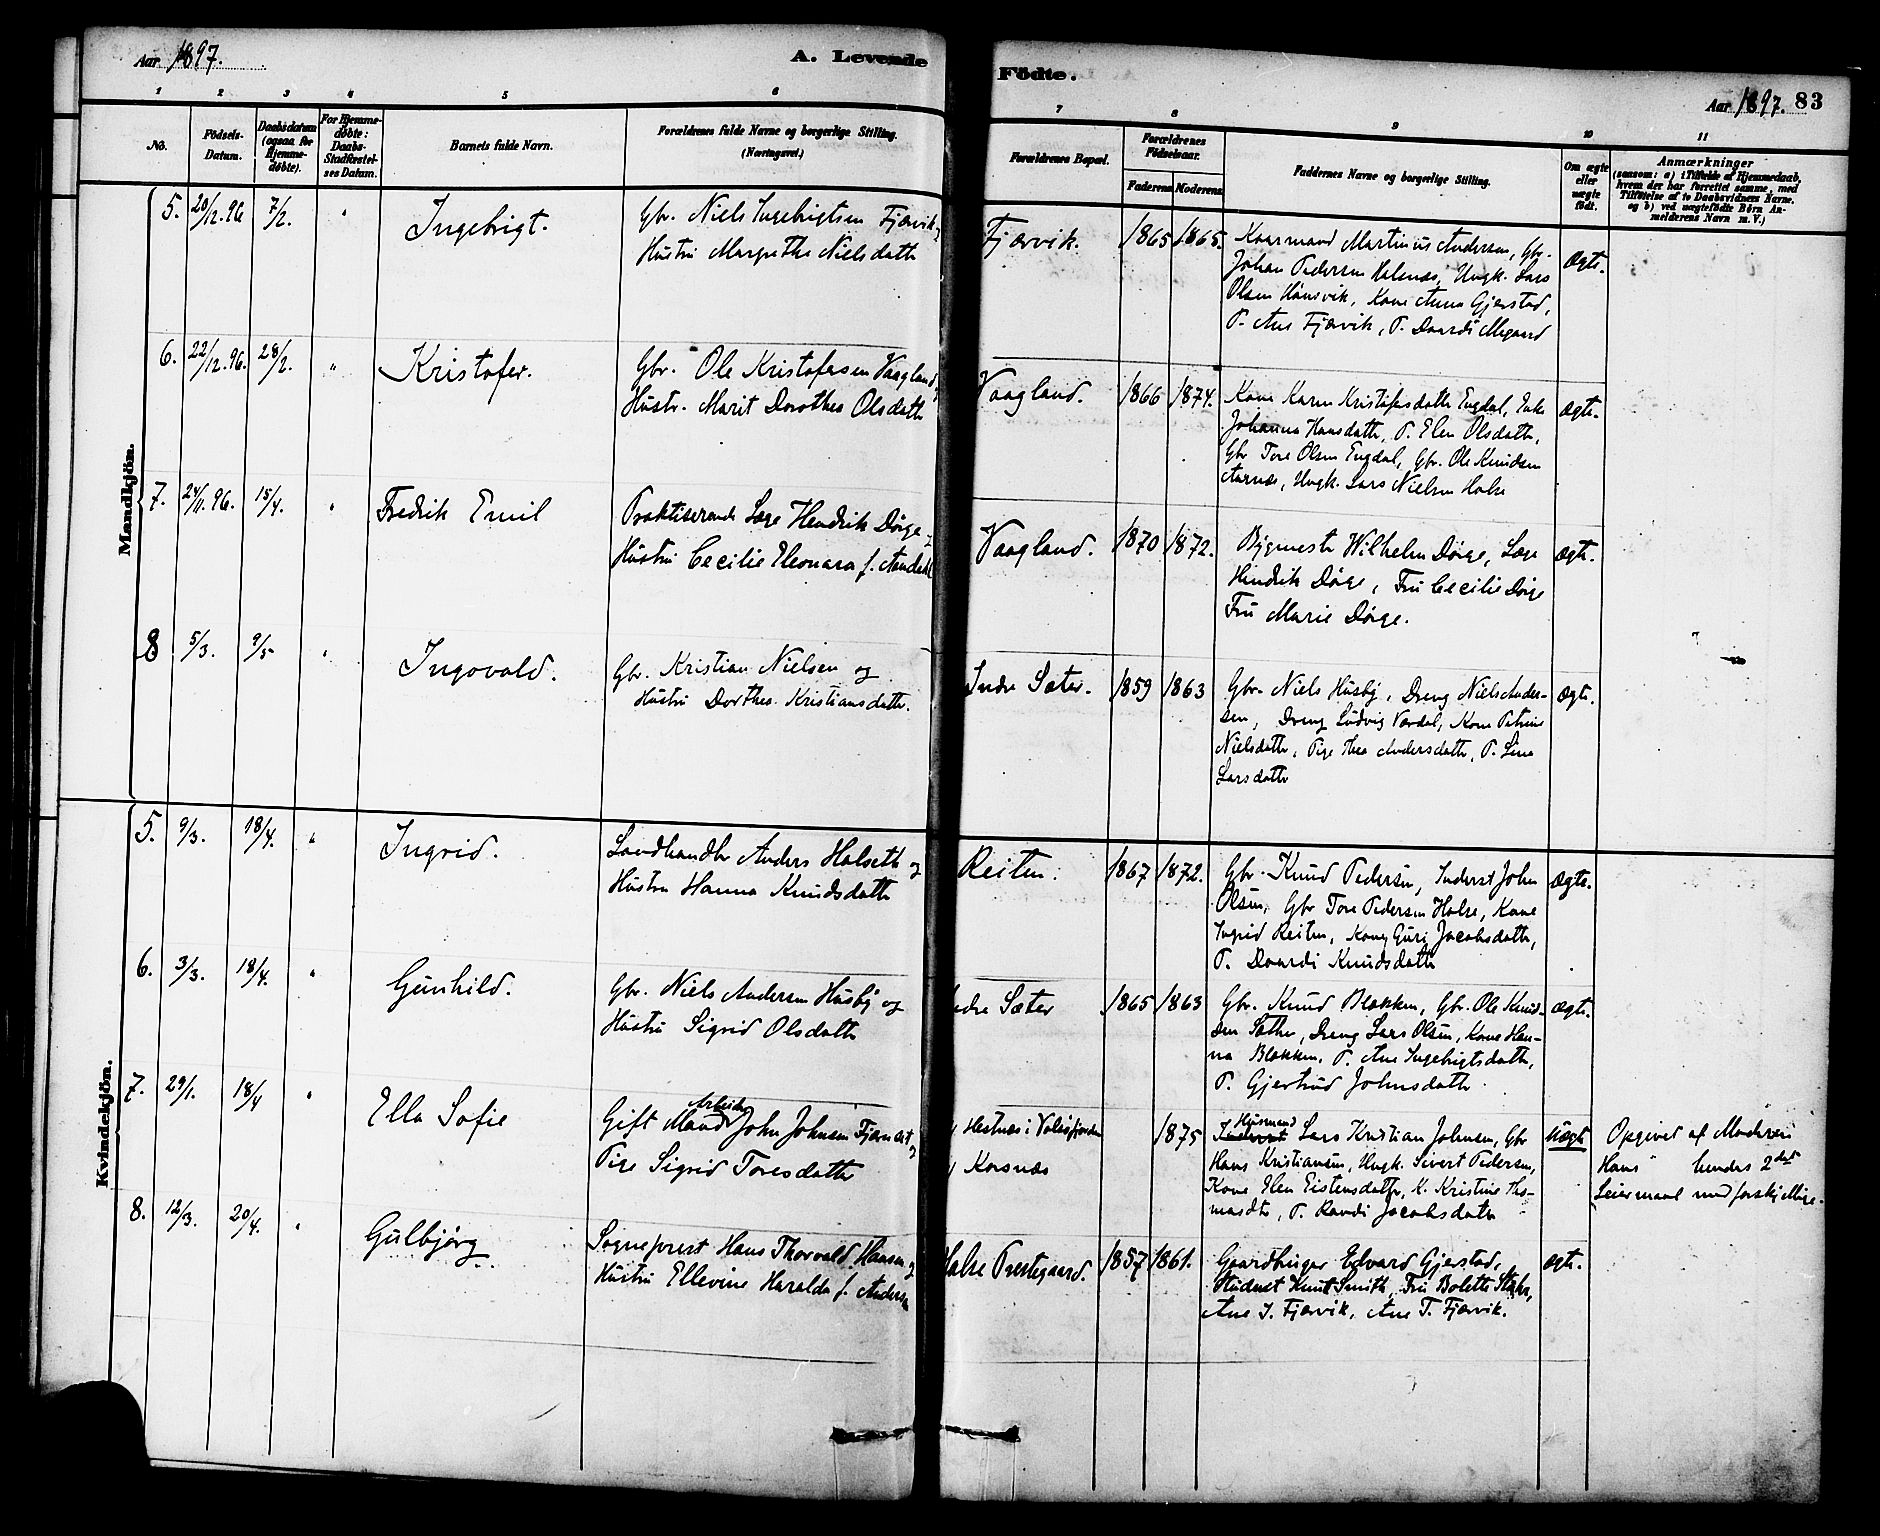 Aar 1897.
A. Levende Födte.
Aar 1897. 83
1 2 3 4 5 6 7 8 9 10 11
No.
Födsels-
Datum.
Daabsdatum
(ogsaa for
Hjemme-
döbte).
For Hjemme-
döbte:
Daabs-
Stadfæstel-
ses Datum.
Barnets fulde Navn.
Forældrenes fulde Navne og borgerlige Stilling.
(Næringsvei.)
Forældrenes Bopæl.
Forældrenes
Födselsaar.
Faderens. Moderens.
Faddernes Navne og borgerlige Stilling.
Om ægte
eller
uægte
födt.
Anmærkninger
(saasom: a) i Tilfælde af Hjemmedaab,
hvem der har forrettet samme, med
Tilföielse af to Daabsvidners Navne.
og b) ved uægtefödte Börn An-
melderens Navn m. V.)
Mandkjön.
5. 20/12.96 7/2. " Ingebrigt.
Gbr. Niels Ingebrigtsen Fjærvik og
Hustru Margrethe Nielsdatter
Fjærvik. 1865 1865.
Kaarmand Martinius Andersen, Gbr.
Johan Pedersen Halsnæs, Ungk. Lars
Olsen Hansvik, Kone Anna Gjerstad,
P. Ane Fjærvik, P. Daardi Megaard
Ægte.
6. 22/12.96. 28/2. " Kristofer.
Gbr. Ole Kristofersen Vaagland,
Hustr. Marit Dorothea Olsdatter
Vaagland. 1866 1874.
Kone Karen Kristofersdatter Engdal, Enke
Johanna Hansdatter, P. Elen Olsdatter,
Gbr Tore Olsen Engdal, Gbr. Ole Knudsen
Aarnæs, Ungk. Lars Nielsen Halse
Ægte.
7. 24/11.96. 15/4. " Fredrik Emil
Praktiserende Læge Hendrik Dørge og
Hustru Cecilie Eleonara f. Aandahl
Vaagland. 1870 1872.
Bygmester Wilhelm Dørge, Læge
Hendrik Dørge, Fru Cecilie Dørge
Fru Marie Dørge.
Ægte.
8 5/3. 9/5 " Ingovald.
Gbr. Kristian Nielsen og
Hustru Dorthea Kristiansdatter.
Indre Sæter. 1859 1863
Gbr. Niels Husby, Dreng Niels Ander-
sen, Dreng Ludvig Vardal, Kone Petrine
Nielsdatter, Pige Thea Andersdatter, P. Lina
Larsdatter
Ægte.
Kvindekjön.
5. 9/3. 18/4. " Ingrid.
Landhandler Anders Halseth og
Hustru Hanna Knudsdatter
Reiten. 1867 1872.
Gbr. Knud Pedersen, Inderst John
Olsen, Gbr Tore Pedersen Halse, Kone
Ingrid Reiten, Kone Guri Jacobsdatter,
P. Daardi Knudsdatter
Ægte.
6. 3/3. 18/4. " Gunhild.
Gbr. Niels Andersen Husby og
Hustru Sigrid Olsdatter
Indre Sæter 1865 1863
Gbr. Knud Blakken, Gbr. Ole Knud-
sen Sæther, Dreng Lars Olsen, Kone Han-
na Blakken, P. Ane Ingebrigtsdatter,
P. Gjertrud Johnsdatter
Ægte.
7. 29/1. 18/4 " Ella Sofie
Arbeider
Gift Mand John Johnsen Fjærnæst og
Pige Sigrid Toresdatter
Hestnæs i Valsøfjorden
Korsnæs
1875
Husmand
Inderst Lars Kristian Johnsen, Gbr
Hans Kristiansen, Ungk. Sivert Pedersen,
Kone Elen Eistensdatter, K. Kristine Tho-
masdtr, P. Randi Jacobsdatter
Uægte
Opgivet af Moderen
Hans hendes 2det
Leiermaal med forskjellige.
8. 12/3. 20/4. " Gulbjørg.
Sogneprest Hans Thorvald Hansen og
Hustru Ellevine Haralda f. Andersen
Halse Prestegaard. 1857 1861.
Gaardbruger Edvard Gjerstad,
Student Knut Smith, Fru Bolette Støhr,
Ane I. Fjærvik, Ane T. Fjærvik.
Ægte.